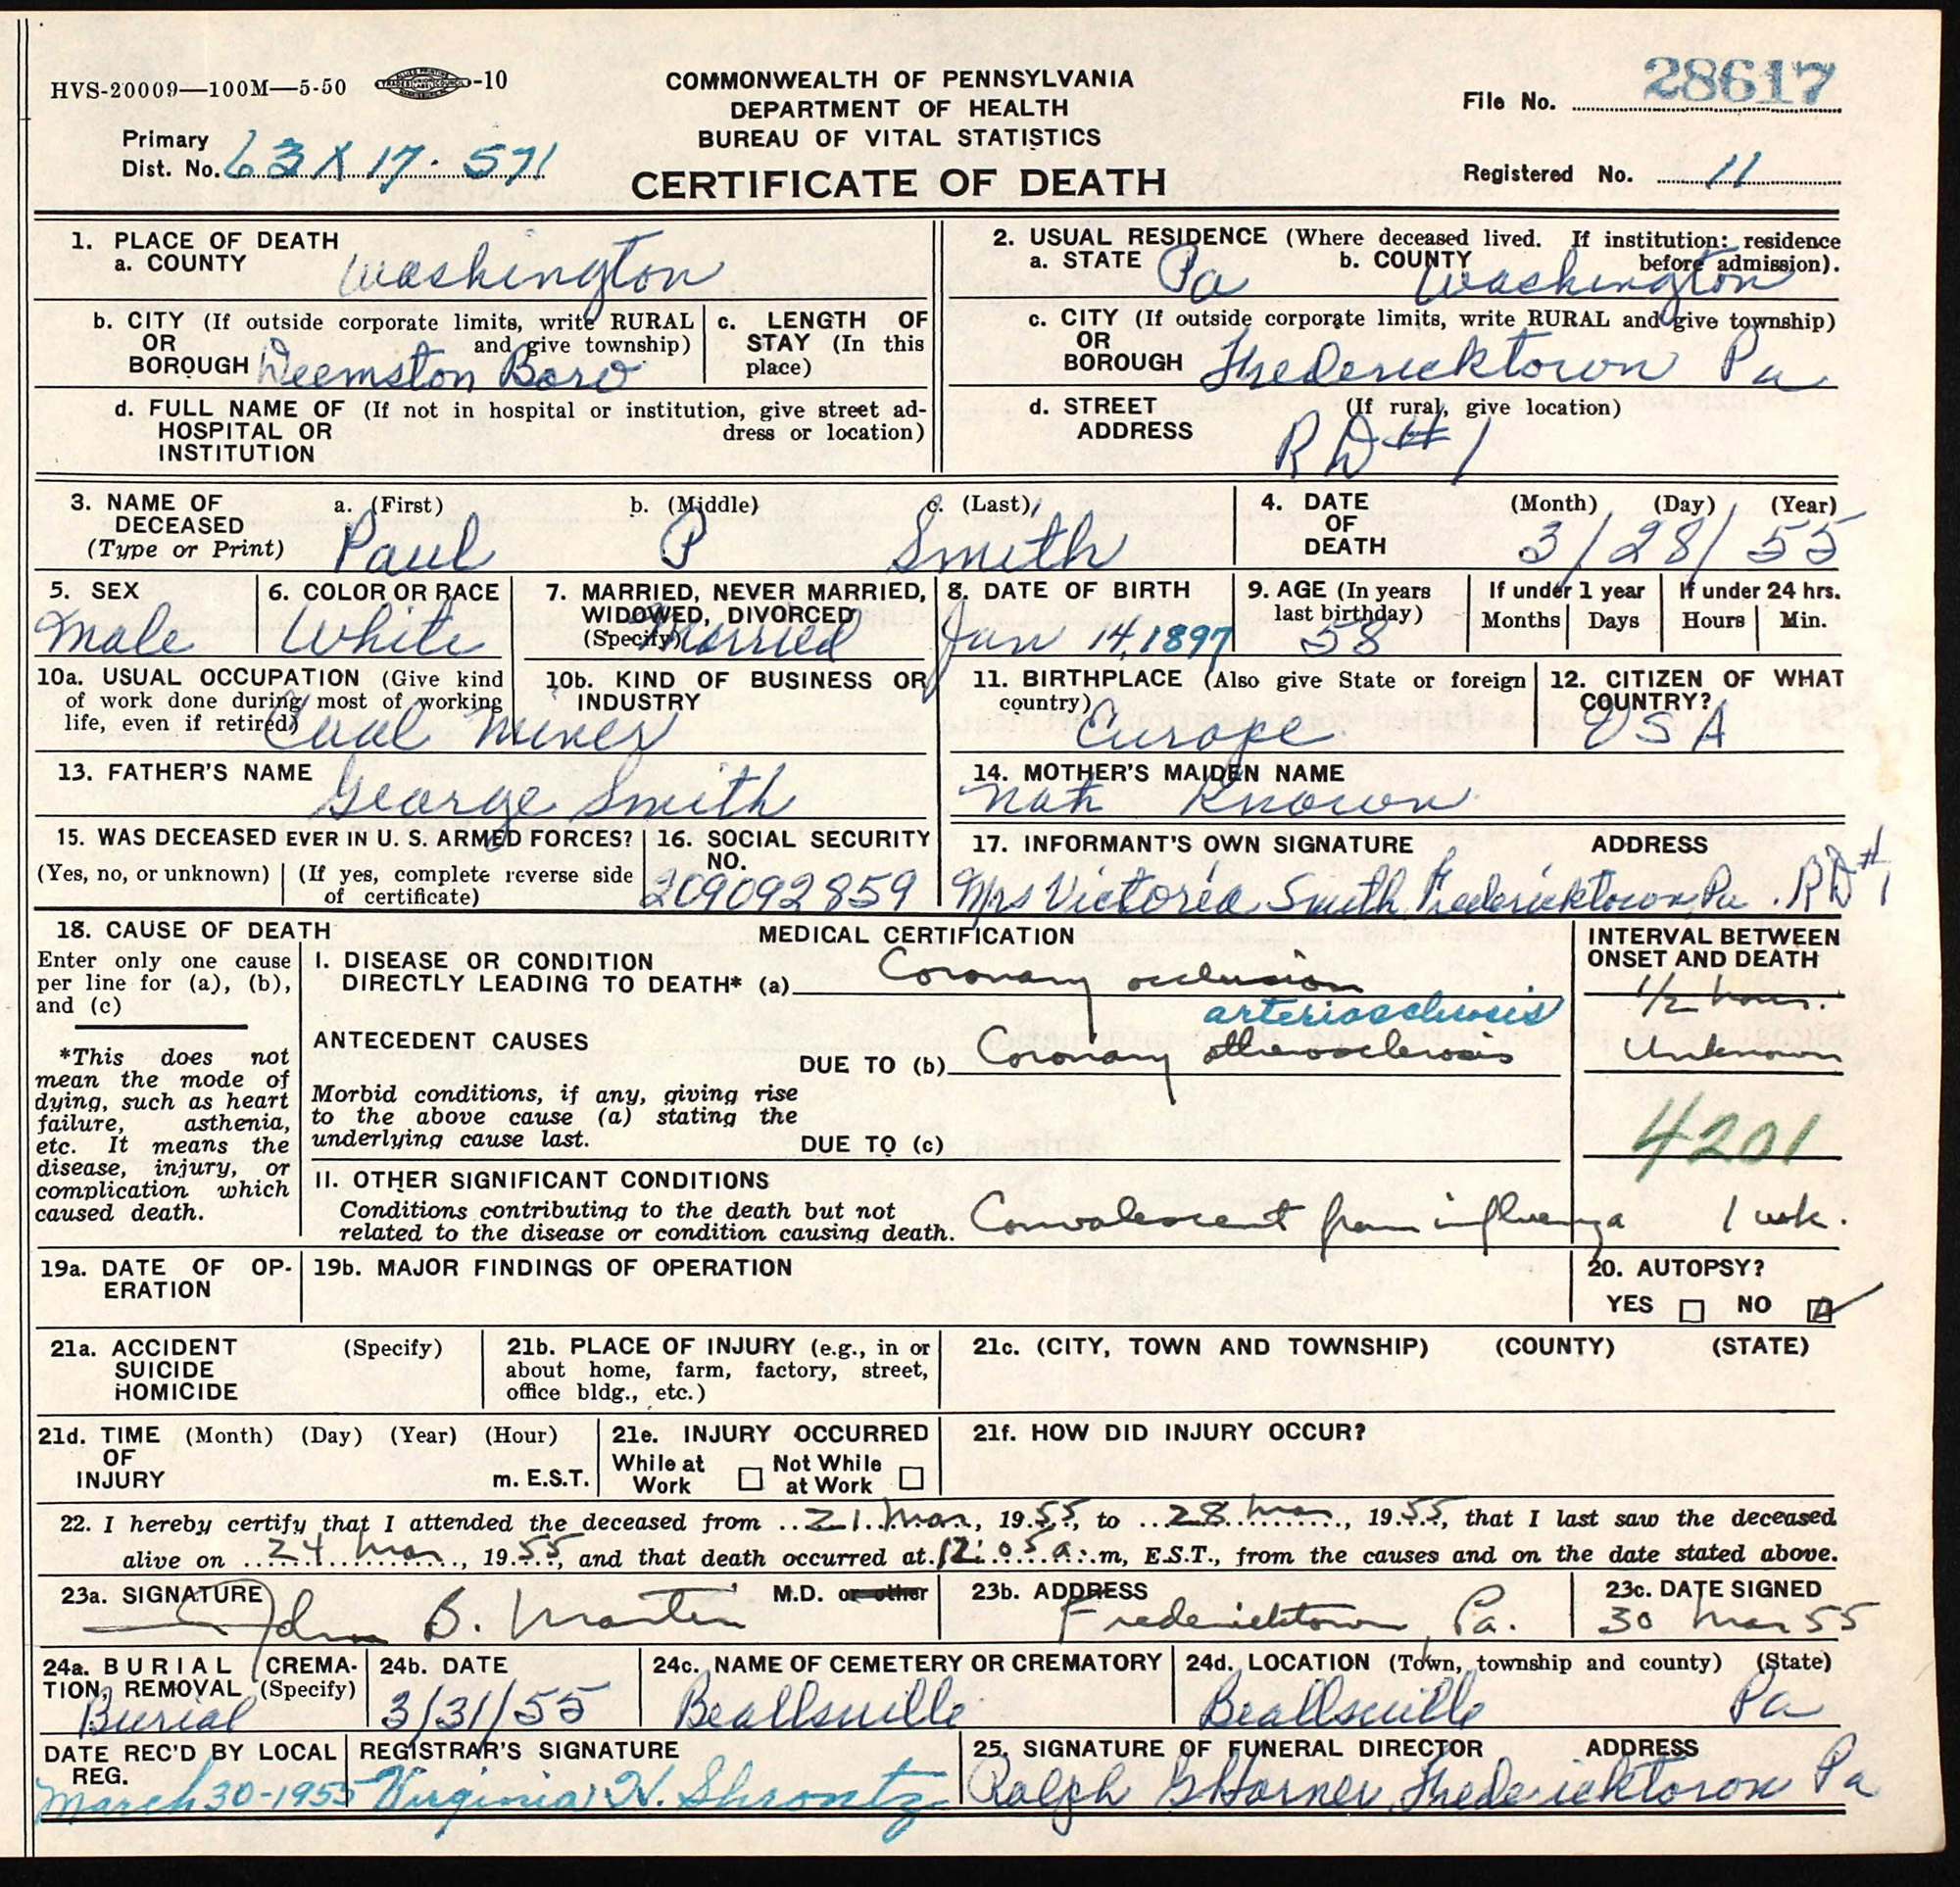 HVS-20009—100M—5-50 -10
COMMONWEALTH OF PENNSYLVANIA
DEPARTMENT OF HEALTH
BUREAU OF VITAL STATISTICS
CERTIFICATE OF DEATH
File No. 28617
Primary
Dist. No. 63 X 17. 571
Registered No. 11
1. PLACE OF DEATH
a. COUNTY Washington
2. USUAL RESIDENCE (Where deceased lived. If institution: residence
before admission).
a. STATE Pa b. COUNTY Washington
b. CITY (If outside corporate limits, write RURAL
OR and give township)
BOROUGH Deemston Boro
c. LENGTH OF
STAY (In this
place)
c. CITY (If outside corporate limits, write RURAL and give township)
OR
BOROUGH Fredericktown Pa
d. FULL NAME OF (If not in hospital or institution, give street ad-
HOSPITAL OR dress or location)
INSTITUTION
d. STREET (If rural, give location)
ADDRESS RD#1
3. NAME OF
DECEASED
(Type or Print)
a. (First) b. (Middle) c. (Last)
Paul P Smith
4. DATE
OF
DEATH
(Month) (Day) (Year)
3/28/55
5. SEX
Male
6. COLOR OR RACE
White
7. MARRIED, NEVER MARRIED,
WIDOWED, DIVORCED
(Specify) Married
8. DATE OF BIRTH
Jan 14, 1897
9. AGE (In years
last birthday)
58
If under 1 year
Months Days
If under 24 hrs.
Hours Min.
10a. USUAL OCCUPATION (Give kind
of work done during most of working
life, even if retired)
Coal Miner
10b. KIND OF BUSINESS OR
INDUSTRY
11. BIRTHPLACE (Also give State or foreign
country)
Europe
12. CITIZEN OF WHAT
COUNTRY?
USA
13. FATHER'S NAME
George Smith
14. MOTHER'S MAIDEN NAME
Not Known
15. WAS DECEASED EVER IN U. S. ARMED FORCES?
(Yes, no, or unknown) (If yes, complete reverse side
of certificate)
16. SOCIAL SECURITY
NO.
209092859
17. INFORMANT'S OWN SIGNATURE ADDRESS
Mrs Victoria Smith Fredericktown, Pa. RD#1
18. CAUSE OF DEATH
Enter only one cause
per line for (a), (b),
and (c)
*This does not
mean the mode of
dying, such as heart
failure, asthenia,
etc. It means the
disease, injury, or
complication which
caused death.
MEDICAL CERTIFICATION
INTERVAL BETWEEN
ONSET AND DEATH
I. DISEASE OR CONDITION
DIRECTLY LEADING TO DEATH* (a) Coronary occlusion 1/2 hour.
arteriosclerosis
ANTECEDENT CAUSES
DUE TO (b) Coronary atherosclerosis Unknown
Morbid conditions, if any, giving rise
to the above cause (a) stating the
underlying cause last.
DUE TO (c)
4201
II. OTHER SIGNIFICANT CONDITIONS
Conditions contributing to the death but not
related to the disease or condition causing death.
Convalescent from influenza 1 wk.
19a. DATE OF OP-
ERATION
19b. MAJOR FINDINGS OF OPERATION
20. AUTOPSY?
YES NO
21a. ACCIDENT (Specify)
SUICIDE
HOMICIDE
21b. PLACE OF INJURY (e.g., in or
about home, farm, factory, street,
office bldg., etc.)
21c. (CITY, TOWN AND TOWNSHIP) (COUNTY) (STATE)
21d. TIME (Month) (Day) (Year) (Hour)
OF
INJURY m. E.S.T.
21e. INJURY OCCURRED
While at Not While
Work at Work
21f. HOW DID INJURY OCCUR?
22. I hereby certify that I attended the deceased from 21 Mar, 1955, to 28 Mar, 1955, that I last saw the deceased
alive on 24 Mar, 1955, and that death occurred at 12:05 a. m, E.S.T., from the causes and on the date stated above.
23a. SIGNATURE M.D. or other
John B. Martin
23b. ADDRESS
Fredericktown, Pa.
23c. DATE SIGNED
30 Mar 55
24a. BURIAL CREMA-
TION, REMOVAL (Specify)
Burial
24b. DATE
3/31/55
24c. NAME OF CEMETERY OR CREMATORY
Beallsville
24d. LOCATION (Town, township and county) (State)
Beallsville Pa
DATE REC'D BY LOCAL
REG.
March 30-1955
REGISTRAR'S SIGNATURE
Virginia H. Shrontz
25. SIGNATURE OF FUNERAL DIRECTOR ADDRESS
Ralph G Horner Fredericktown Pa